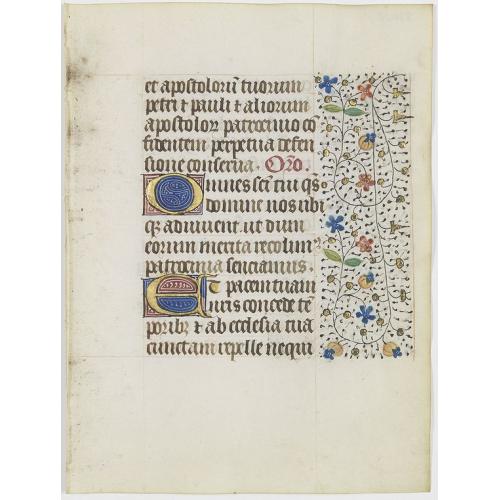 et apostoloru᷒ tuorum
petri ⁊ pauli ⁊ aliorum
apostolor patrocinio cō
fidentem perpetua defen
sione conserua. Orō.
Omnes scī tui q̄s
domine nos ubi
q; adiuuent. ut dum
eorum merita recolim᷒
patrocinia senciamus.
Et pacem tuam
nr̄is concede tē
porib; ⁊ ab ecclesia tua
cunctam repelle nequi